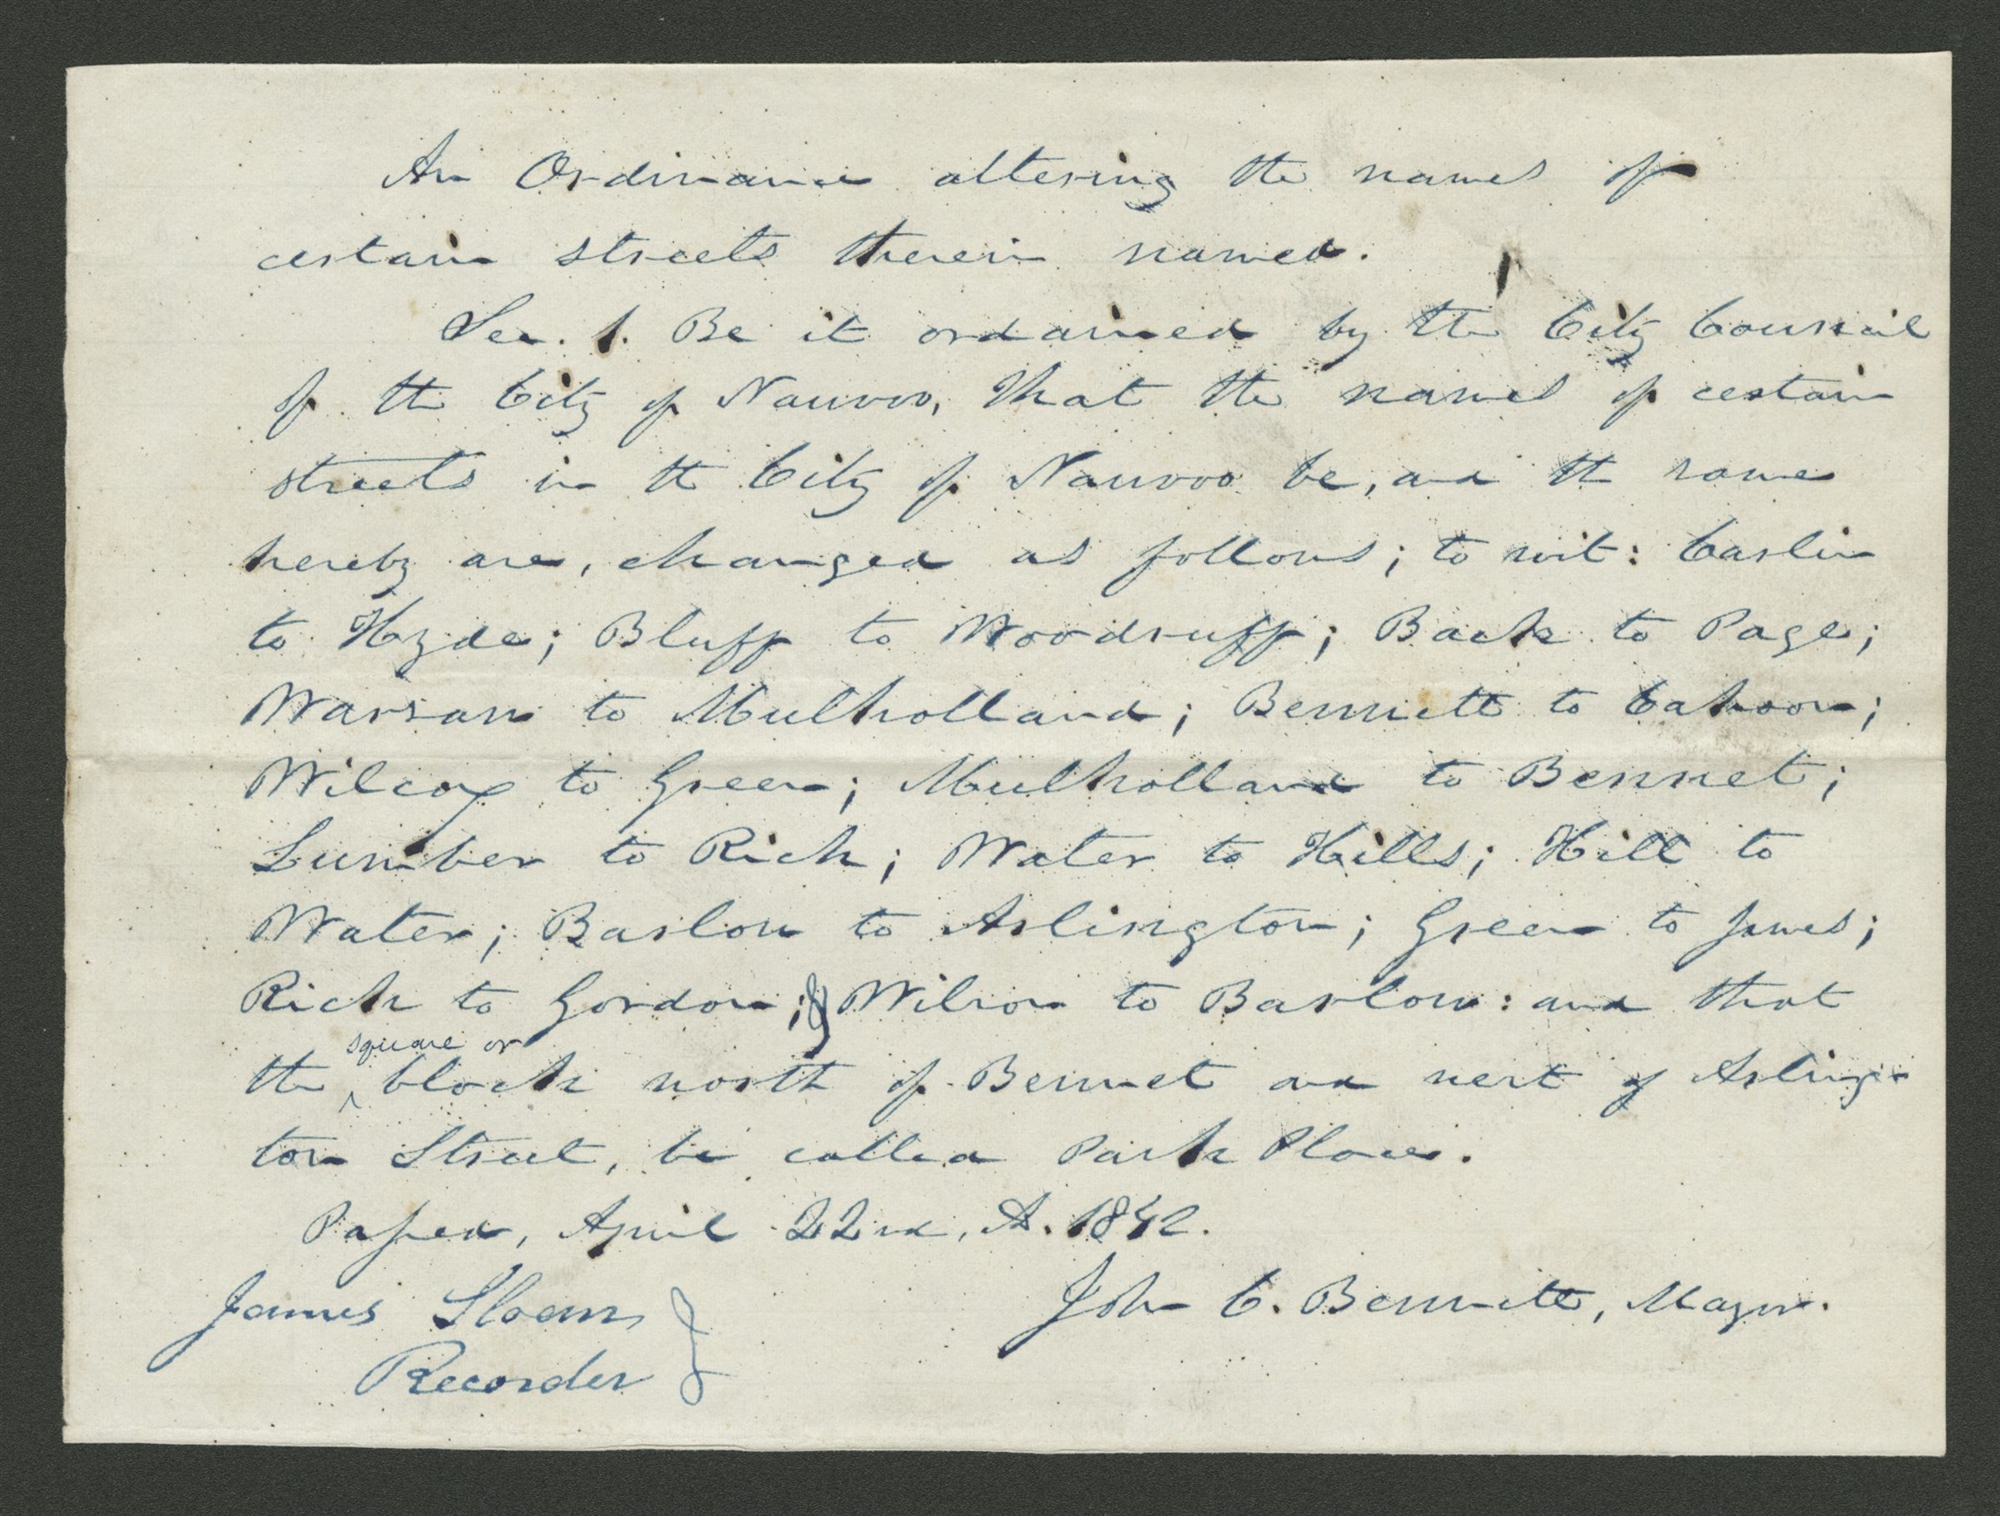 An Ordinance altering the names of
certain streets therein named.
Sec. 1. Be it ordained by the City Council
of the City of Nauvoo, That the names of certain
streets in the City of Nauvoo be, and the same
hereby are, changed as follows; to wit: Carlin
to Hyde; Bluff to Woodruff; Back to Page;
Warsaw to Mulholland; Bennett to Cahoon;
Wilcox to Green; Mulholland to Bennet;
Lumber to Rich; Water to Hills; Hill to
Water; Barlow to Arlington; Green to James;
Rich to Gordon; & Wilson to Barlow: and that
square or
the ^ block north of Bennet and west of Arling-
ton Street, be called Park Place.
Passed, April 22nd, A. 1842.
James Sloan, John C. Bennett, Mayor.
Recorder